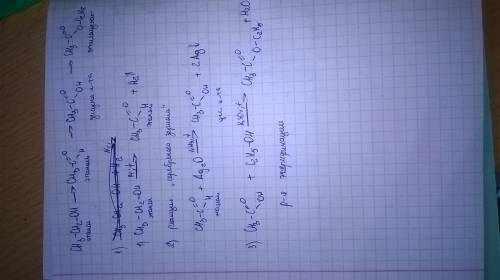 CH3-CH2-OH → CH3-C=O H → CH3-C=O OH → CH3-C=O O-C2H5
этанол этаналь уксусная к-та этилацетат
1) CH3-CH2-OH Ni,t→ CH3-C=O H + H2↑
этанол этаналь
2) реакция „серебряного зеркала"
CH3-C=O H + Ag2O NH3,t→ CH3-C=O OH + 2Ag↓
этаналь укс. к-та
3) CH3-C=O OH + C2H5-OH → CH3-C=O O-C2H5 + H2O
р-я этерификации